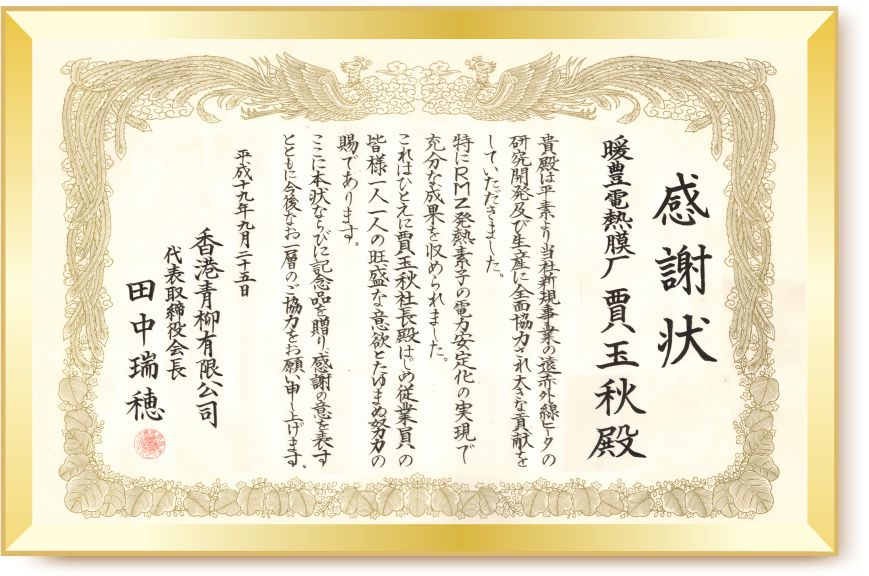 感謝状
暖豊電熱膜厂 賈玉秋殿
貴殿は平素より当社新規事業の遠赤外線ヒータの
研究開発及び生産に全面協力され大きな貢献を
していただきました。
特にRMZ発熱素子の電力安定化の実現で
充分な成果を収められました。
これはひとえに賈玉秋社長殿はじめ従業員の
皆様一人一人の旺盛な意欲とたゆまぬ努力の
賜であります。
ここに本状ならびに記念品を贈り、感謝の意を表す
とともに今後なお一層のご協力をお願い申し上げます。
平成十九年九月二十五日
香港青柳有限公司
代表取締役会長
田中瑞穂